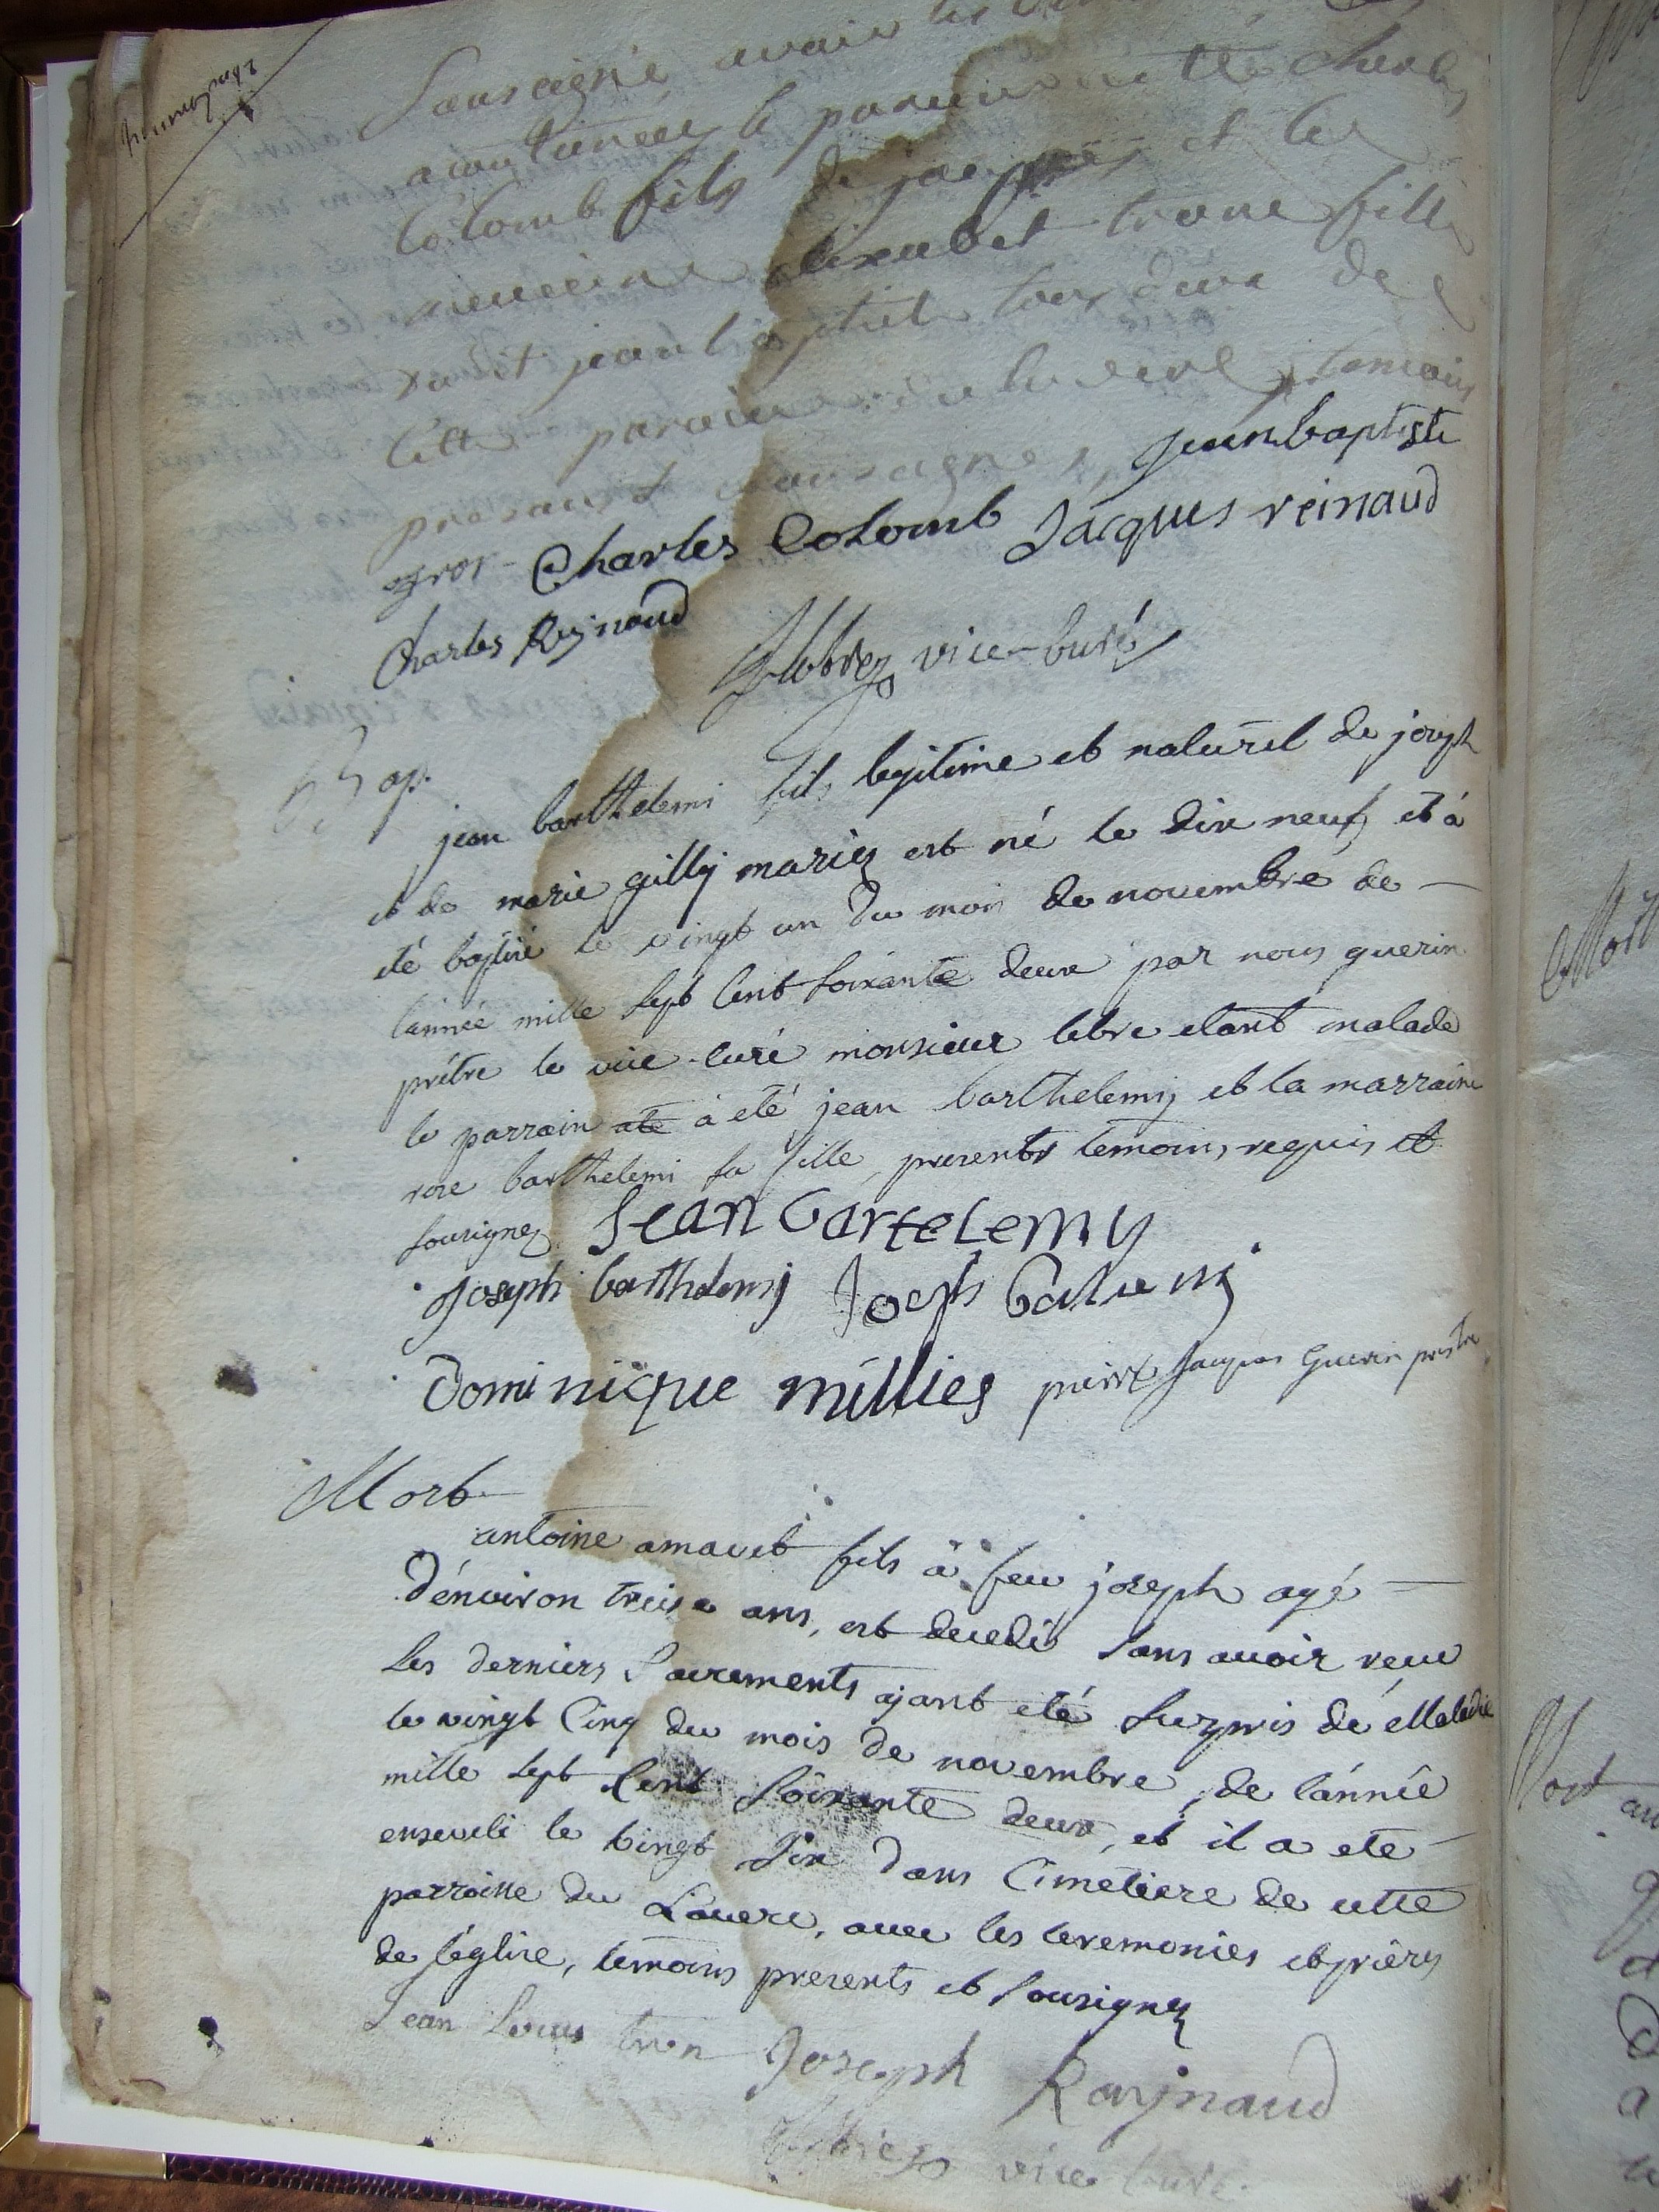 Sousigné avair les
acoutumées le parrein a eté charles
Colomb fils de jacques et la
meireine elixabet trone fille
a dit jean baptiste tous deux de
cette paroisse du lavere temoins
presant sousagnes, jeanbaptiste
gros - Charles Colomb Jacques reinaud
Charles Reynaud
vice-curé
Bap.
jean barthelemi fils legitime et naturel de joseph
et de marie gilly mariez est né le dix neuf et à
eté baptisé le vingt un du mois de novembre de
l'année mille sept cent soixante deux par nous guerin
prêtre le vice-curé monsieur lebre etant malade
le parrain ate à eté jean barthelemy et la marraine
rose barthelemi sa fille, presents temoins, requis et
sousignez Jean bartelemy
Joseph barthelemy Joseph
Dominique millies pierre jacques Guerin prestre
Mort
antoine amavet fils à feu joseph agé
d'énviron treise ans, est decedé sans avoir receu
les derniers sacrements ajant eté surpris dé Maladie
le vingt cinq du mois de novembre, de l'année
mille sept cent soixante deux, et il a eté
enseveli le vingt six dans Cimetiere de cette
parroisse du Lavere, avec les ceremonies et prières
de l'église, temoins presents et sousignez
Jean Louis tron Joseph Raynaud
vice curé